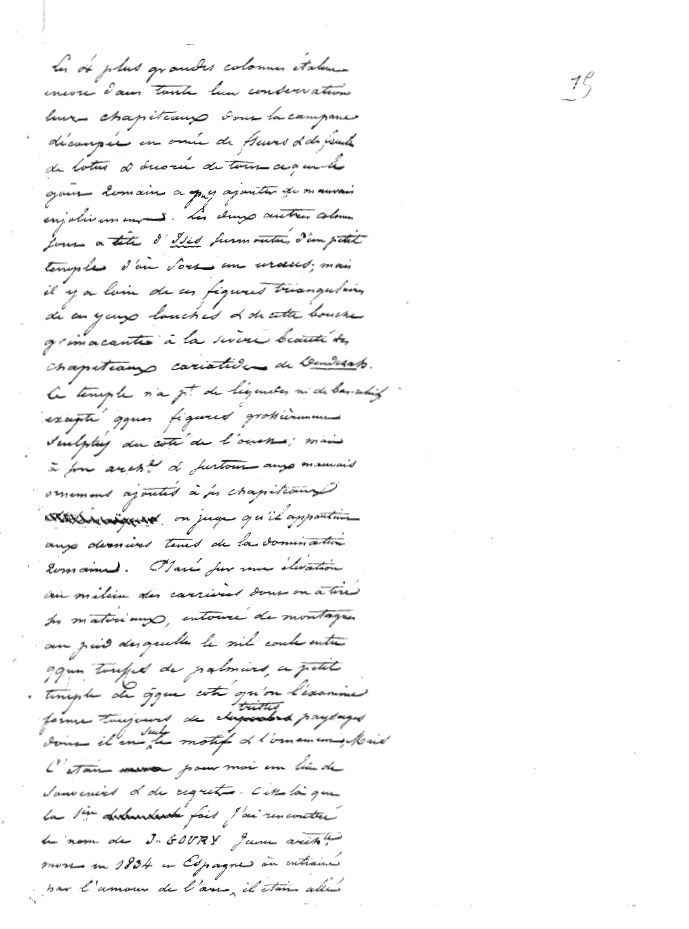 19
Les 4 plus grandes colonnes étalent
encore dans toute leur conservation
leurs chapiteaux dont la campane
découpée en ornée de fleurs & de feuille
de lotus & décorée de tout ce que le
goût Romain a pu y ajouter de mauvais
enjolivement. Les deux autres colonn
sont a tête d'Isis surmontée d'un petit
temple d'où sort un uraeus; mais
il y a loin de ces figures triangulaires
de ces yeux louches & de cette bouche
grimacante à la sévère beauté des
chapiteaux cariatides de Denderah.
Ce temple n'a pt de légendes ni de bas-reliefs
excepté qques figures grossièrement
sculptés du coté de l'ouest; mais
à son archre & surtout aux mauvais
ornemens ajoutés à ses chapiteaux
on juge qu'il appartient
aux derniers tems de la domination
Romaine. Placé sur une élévation
au milieu des carrières dont on a tiré
ses matériaux, entouré de montagnes
au pied desquelles le nil coule entre
qques touffes de palmiers, ce petit
temple de qque coté qu'on l'examine
forme toujours de tristes paysages
dont il est seul le motif & l'ornement. Mais
C'était pour moi un lieu de
souvenirs & de regrets. C'est là que
la 1ère fois j'ai rencontré
le nom de J. GOURY jeune archte
mort en 1834 en Espagne où entrainé
par l'amour de l'art, il était allé